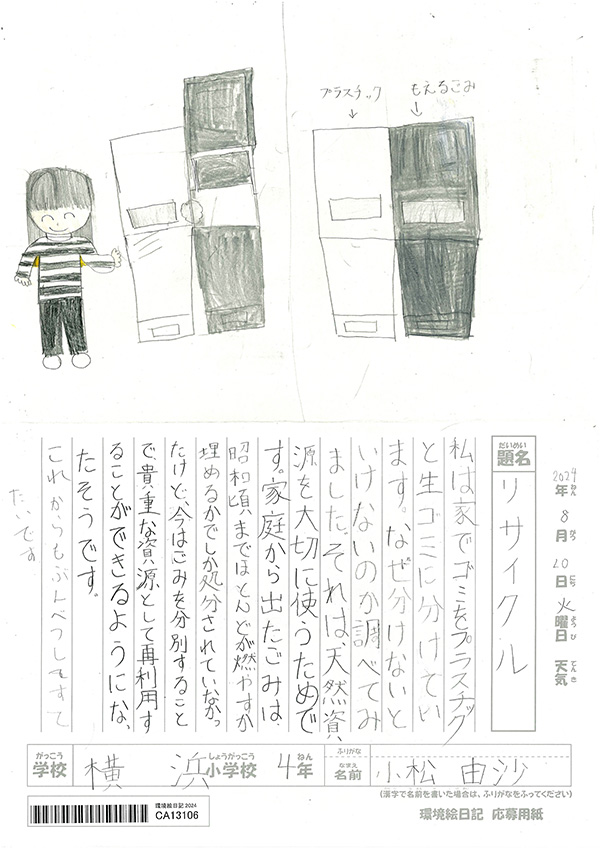 プラスチック
↓
もえるごみ
↓
2024年 8月 20日 火曜日 天気
ねん がつ にち ようび てんき
だいめい
題名
リサイクル
私は家でゴミをプラスチック
と生ゴミに分けてい
ます。なぜ分けないと
いけないのか調べてみ
ました。それは天然資
源を大切に使うためで
す。家庭から出たごみは、
昭和頃までほとんどが燃やすか
埋めるかでしか処分されていなかっ
たけど、今はごみを分別すること
で、貴重な資源として再利用す
ることができるようになっ
たそうです。
これからもぶんべつしてすて
たいです
がっこう
学校
横浜
しょうがっこう
小学校
4年
ねん
ふりがな
なまえ
名前
小松 由沙
(漢字で名前を書いた場合は、ふりがなをふってください)
環境絵日記 2024
CA13106
環境絵日記 応募用紙